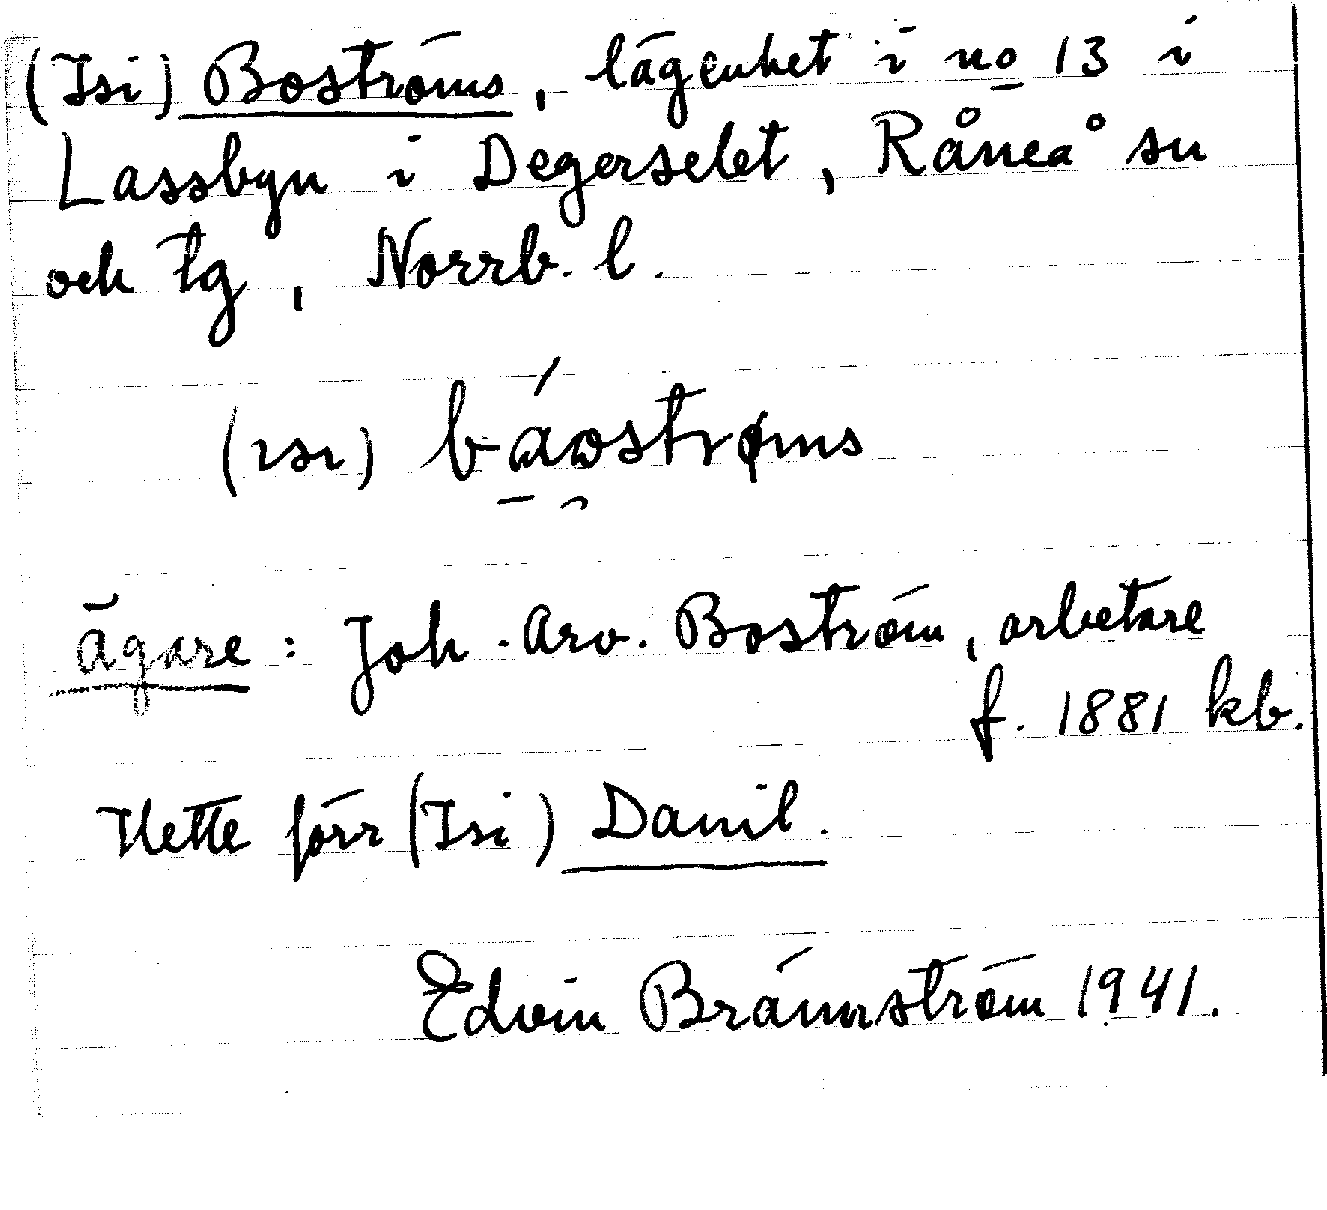 (Isi) Boströms, lägenhet i no 13 i
Lassbyn i Degerselet, Råneå sn
och tg, Norrb. l.
(ısı) báostrøms
ägare: Joh. Arv. Boström, arbetare
f. 1881 kb.
Hette förr (Isi) Danil.
Edvin Brännström 1941.